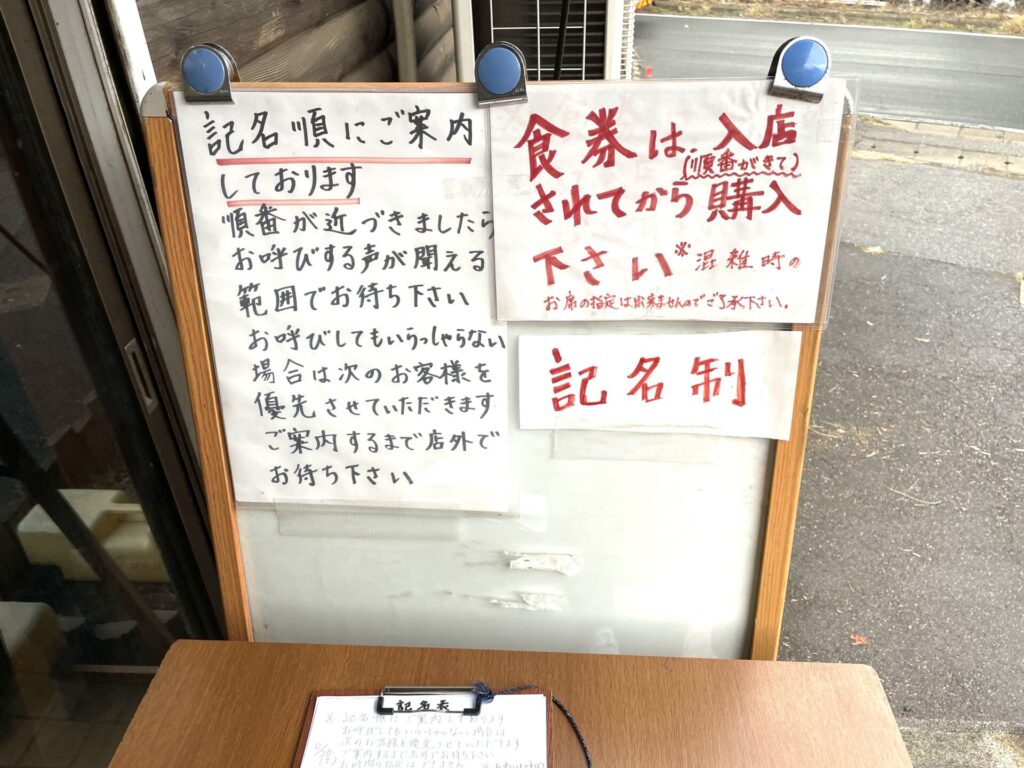 記名順にご案内
しております
順番が近づきましたら
お呼びする声が聞える
範囲でお待ち下さい
お呼びしてもいらっしゃらない
場合は次のお客様を
優先させていただきます
ご案内するまで店外で
お待ち下さい
食券は、入店
(順番がきて)
されてから購入
下さい※混雑時の
お席の指定は出来ませんのでご了承下さい。
記名制
記名表
記名順にご案内しております
お呼びしてもいらっしゃらない場合は
次のお客様を優先させていただきます
ご案内するまで店外でお待ち下さい